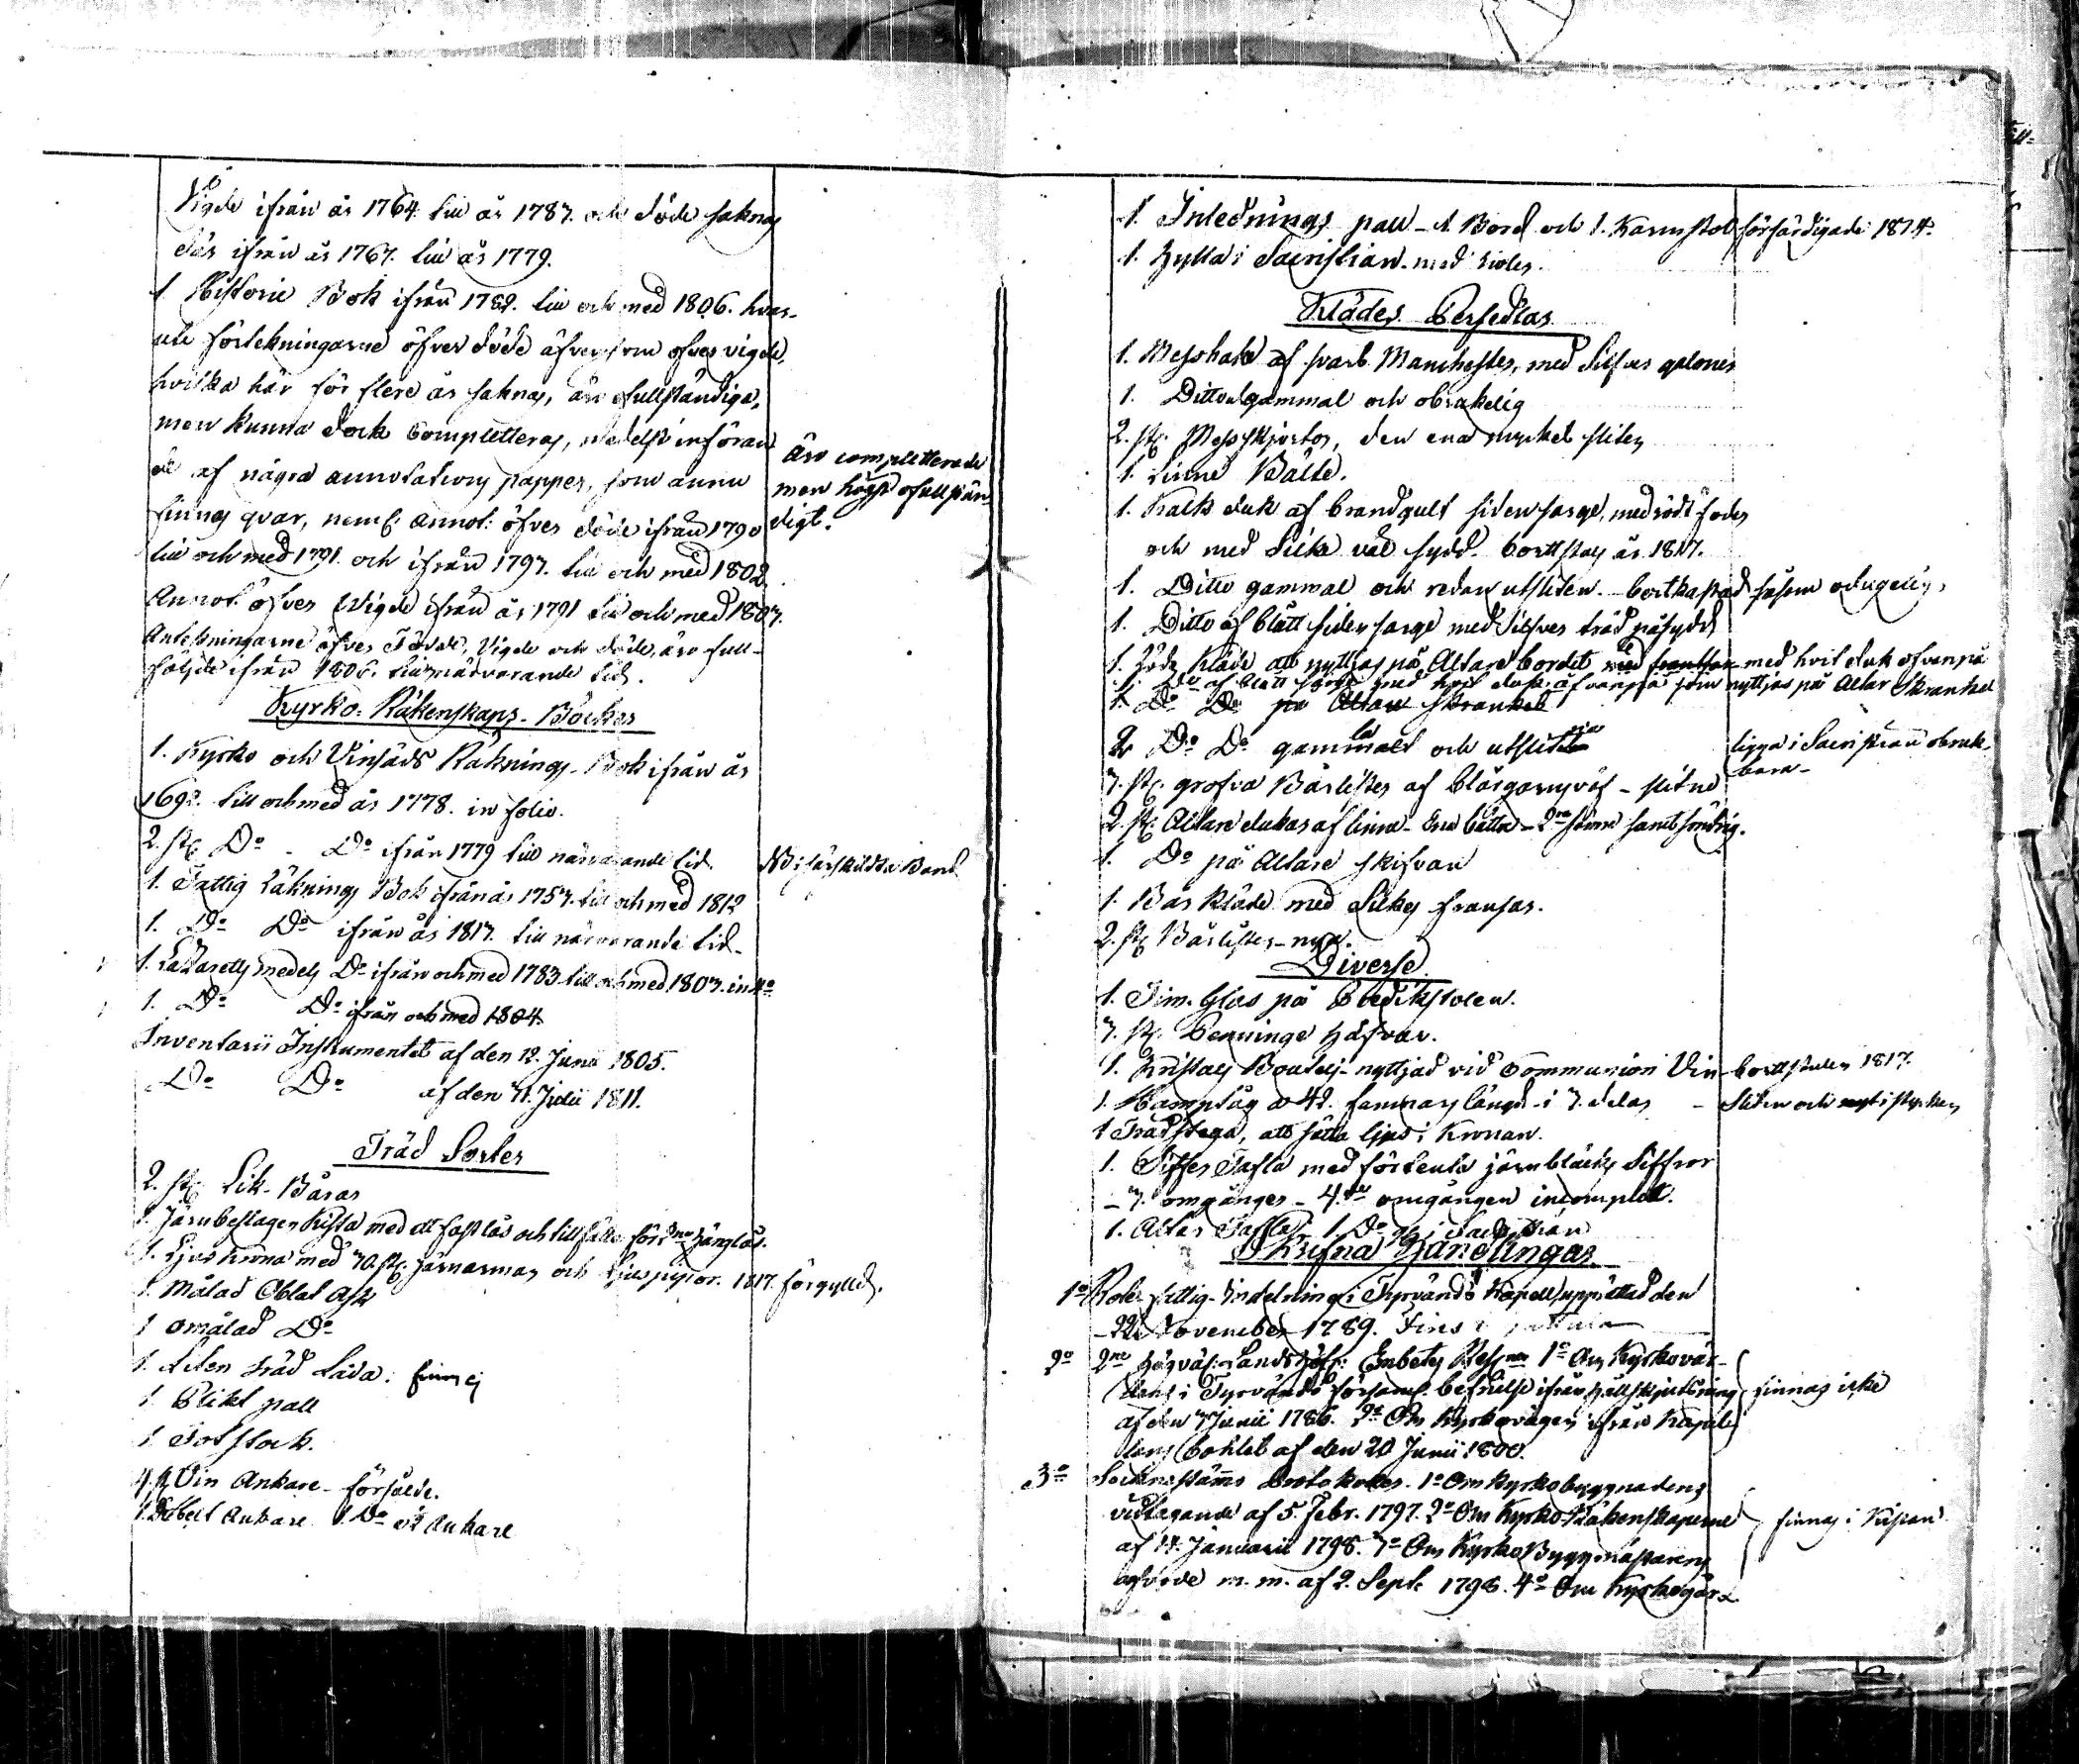 Vigde ifrån år 1764. till år 1787. och döde saknas
där ifrån år 1767. till år 1779.
1. Historie Bok ifrån 1782. till och med 1806. hvar-
uti förtekningarne öfver döde äfvensom öfver vigde,
hvilka här för flere år saknas, äro ofullständiga,
men kunna dock completteras, medelst införan
de af några annotations papper, som ännu
finnas qvar, neml: Annot: öfver döde ifrån 1790
till och med 1791. och ifrån 1797. till och med 1802
Annot. öfver Vigde ifrån år 1791 till och med 1803.
Antekningarne öfver Födde, Vigde och döde, äro full-
följde ifrån 1806. till närvarande tid.
Äro completterade
men högst ofullstän-
digt.
Kyrko-Räkenskaps-Böcker
1. Kyrko och Vinsäds Räknings-Bok ifrån år
1693. till och med år 1778. in folio.
2. st: Do - Do ifrån 1779 till närvarande tid.
1. Fattig Räknings Bok ifrån år 1757. till och med 1812
NB i särskildta Band
1. Do Do ifrån år 1813. till närvarande tid.
1. Lazaretts medels Do ifrån och med 1783 till och med 1803. in 4to
1. Do Do ifrån och med 1804.
Inventarii Instrumentet af den 12. Junii 1805.
Do Do af den 31. Julii 1811.
Träd Sorter
2. st: Lik-Bårar
1. Järnbeslagen Kista med ett fast lås och tillfälle för 2ne hänglås.
1. Ljus krona med 30. st: Järnarmar och Ljus pipor. 1817. förgylld.
1. Målad Oblat Ask
1 omålad Do
1. Liten träd Låda. finns ej
1 Plikt pall
1 Fotstock.
4. st Vin Ankare - försålde.
1. Dubbelt Ankare 1. Do st Ankare
1. Inlednings pall - 1. Bord och 1. Karmstol förfärdigade 1814.
1. Hylla i Sacristian med ridler.
Kläder Persedlar
1. Messhake af svart Manchester, med Silfver galoner
1. Ditto gammal och obrukelig
2. st: Messskjortor, den ena mycket sliten
1. Linne Bälte.
1. Kalk duk af brandgult siden sarge, med rödt foder
och med Silke väl sydd. bortstulen år 1817.
1. Ditto gammal och redan utsliten. - bortkastad såsom oduglig.
1. Ditto af blått siden sarge med silfver tråd påsydd
1. rödt Kläde att nyttjas på Altare bordet med fransar med hvit duk ofvanpå
1. Do af blått sarge med hvit duk äfvanpå som nyttjas på Altar skranket
1. Do Do på Altare skranket
2. Do Do gamla och utslitne
ligga i Sacristian obruk-
bara -
3. st: grofva Bårlister af blårgarnsväf - slitne
2. st: Altare dukar af linne - Ena bättre - 2ra sämre samt söndrig.
1. Do på Altare skifvan
1. Bår kläde med silkes fransar.
2. st: Bårlister - nya.
Diverse
1. Tim-Glas på Predikstolen.
3. st: Penninge Håfvar.
1. Kristals Boutelj - nyttjad vid Communion Vin - bortstulen 1817.
1. Hamptåg a 42. famnars längd - i 3. delar - Sliten och nyt i stycken
1 Träd stega, att sätta ljus i Kronan.
1. Siffer Tafla med förtenta järnbläcks Siffror
- 3. omgånger - 4.de omgången incomplett.
1. Altar Taffla. 1. Do i Sacristian
Skrifna Handlingar.
1o Rote-fattig-Indelning i Tyrvändö Kapell, upprättad den
- 22 November 1789.
2o 2ne Högväl: Landshöfd: Embets Resol:ner 1o Om Kyrkovär-
dens i Tyrvändö församl. befrielse ifrån hållskjutsning
af den 7 Junii 1786. 2o Om Kyrkovägen ifrån Kapel-
lans bohlet af den 20 Junii 1800.
finnas icke
3o Socknestämmo Protokoller. 1o Om Kyrkobyggnadens
vidtagande af 5. Febr. 1797. 2o Om Kyrko Räkenskaperne
af 14. Januarii 1798. 3o Om Kyrko Byggmästarens
arfvode m. m. af 2. Sept. 1798. 4o Om Kyrkogår-
finnas i Kistan